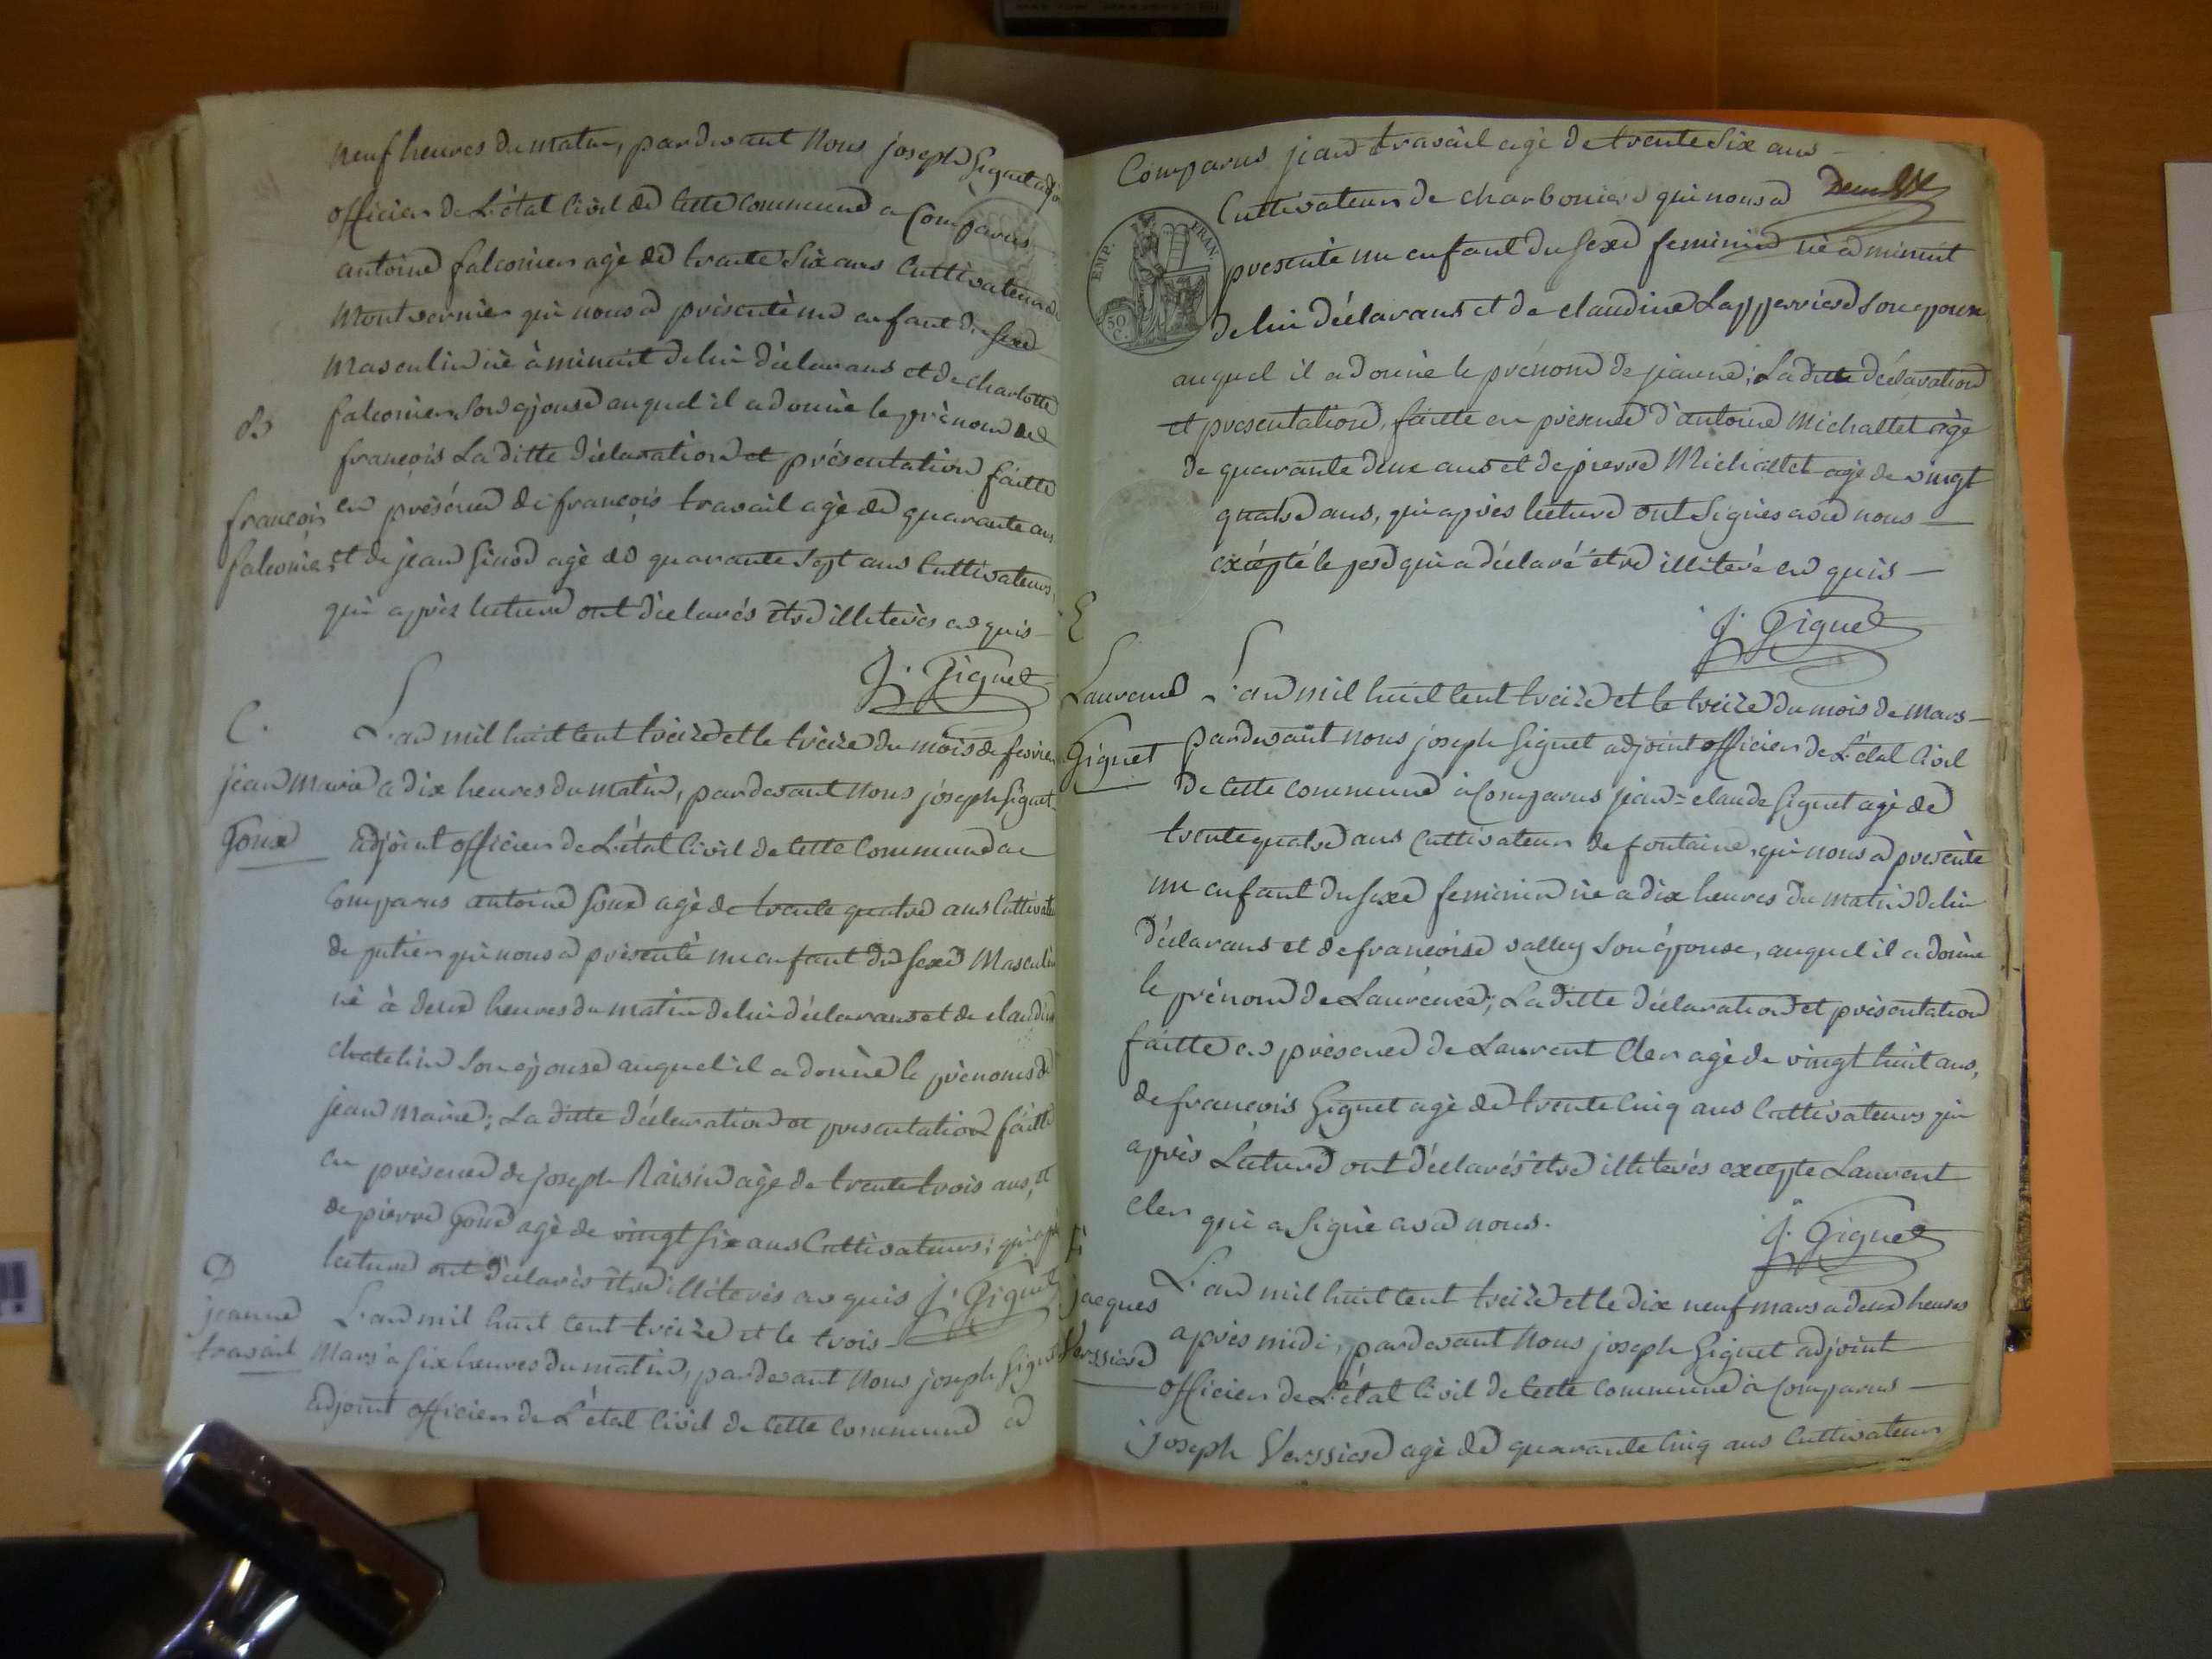 neuf heures du matin, pardevant Nous joseph Gignet adjoi
officier de L'état Civil de Cette Commune a Comparus
antoine falconier agè de trante Six ans Cultivateur de
Montvernier qui nous a présentè un enfant du Sexe
Masculin nè à minuit de lui dèclarans et de charlotte
falconier Son èpouse auquel il a donnè le prènom de
françois La ditte dèclaration et présentation faitte
en présence de françois travail agè de quarante ans
et de jean Sinod agè de quarante Sept ans Cultivateurs,
qui après lecture ont dèclarés être illiterès enquis
J. Gignet
B
françois
falconier
C.
jean Marie
Goux
L'an mil huit Cent treize et le treize du mois de fevrier
a dix heures du matin, pardevant Nous joseph Gignet
adjoint officier de L'état Civil de Cette Commune a
Comparus antoine Goux agè de trente quatre ans Cultivateur
de qui nous a présentè un enfant du Sexe Masculin
nè à deux heures du matin de lui dèclarans et de claudine
chatelin Son èpouse auquel il a donnè le prènoms de
jean Marie; La ditte dèclaration et presentation faitte
en présence de joseph Raisin agè de trente trois ans, et
de pierre Goux agè de vingt Six ans Cultivateurs; qui après
lecture ont dèclarès être illiterès enquis J. Gignet
D
jeanne
travail
L'an mil huit Cent treize et le trois
Mars a Six heures du matin, pardevant Nous joseph Gignet
adjoint officier de L'état Civil de Cette Commune a
Comparus jean travail agè de trente Six ans
Cultivateur de charbonier qui nous a
presentè un enfant du Sexe feminin nè a minuit
de lui dèclarans et de claudine Lapperrière Son epouse
auquel il a donnè le prénom de jeanne; La ditte dèclaration
et presentation, faitte en présence d'antoine Michallet agè
de quarante deux ans et de pierre Michallet agè de vingt
quatre ans, qui après lecture ont Signès avec nous
excépté le pere qui a déclaré être illiteré enquis
J. Gignet
EMP. FRAN.
50 C.
E
Laurence
Gignet
L'an mil huit Cent treize et le treize du mois de Mars
pardevant nous joseph Gignet adjoint officier de L'état Civil
de Cette Commune à Comparus jean=claude Gignet agè de
trente quatre ans Cultivateur de fontaine, qui nous a presentè
un enfant du Sexe feminin nè a dix heures du matin de lui
dèclarans et de françoise valley Son épouse, auquel il a donnè
le prènom de Laurence; La ditte dèclaration et présentation
faitte en présence de Laurent Cler agè de vingt huit ans,
de françois Gignet agè de trente Cinq ans Cultivateurs qui
après Lecture ont dèclarés être illiterés excepte Laurent
Cler qui a Signè avec nous.
J. Gignet
F
jacques
Verssiere
L'an mil huit Cent treize et le dix neuf mars a deux heures
après midi, pardevant Nous joseph Gignet adjoint
officier de L'état Civil de Cette Commune à Comparus
joseph Verssiere agè de quarante Cinq ans Cultivateur